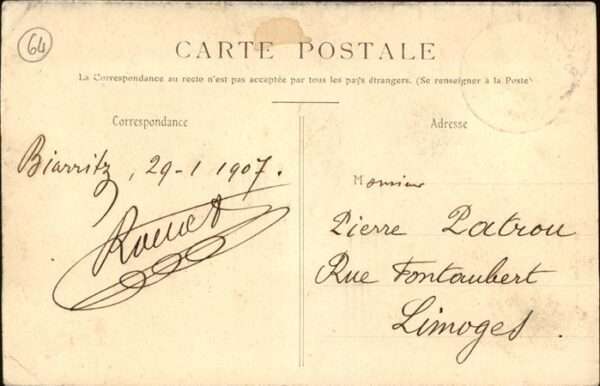 64
CARTE POSTALE
La Correspondance au recto n'est pas acceptée par tous les pays étrangers. (Se renseigner à la Poste)
Correspondance
Adresse
Biarritz, 29-1 1907.
Monsieur
Pierre Patrou
Rue Fontaubert
Limoges.